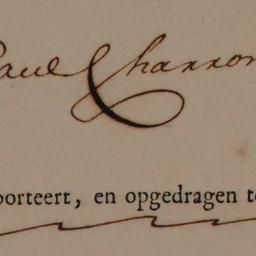 Paul Charron
porteert, en opgedragen te